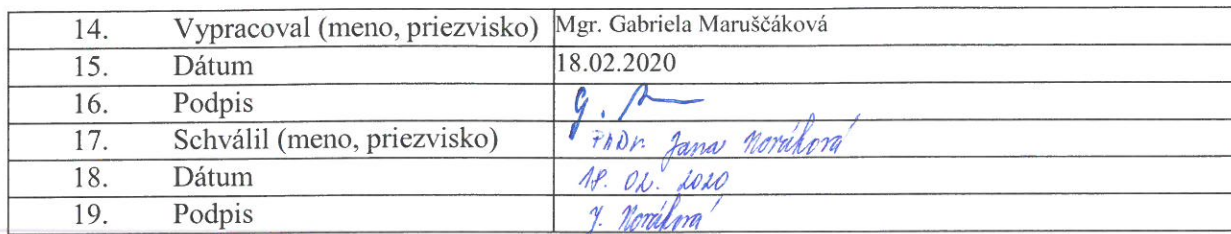 14. Vypracoval (meno, priezvisko) Mgr. Gabriela Maruščáková
15. Dátum 18.02.2020
16. Podpis G.
17. Schválil (meno, priezvisko) PhDr. Jana Nováková
18. Dátum 18. 02. 2020
19. Podpis J. Nováková